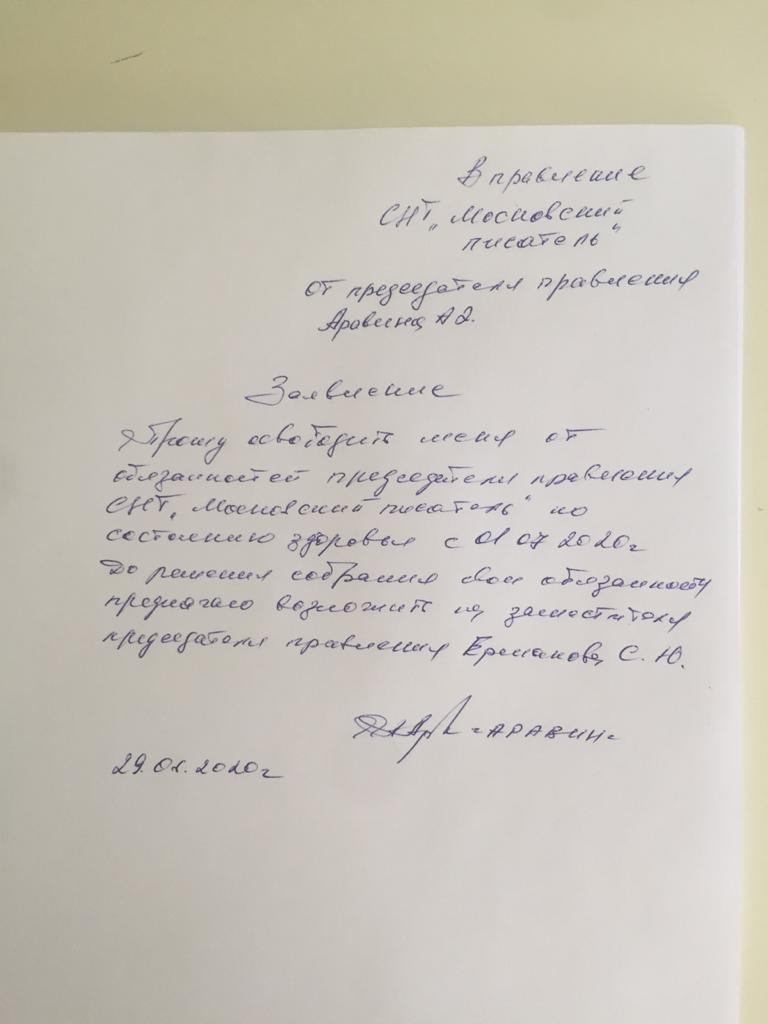 В правление
СНТ „Московский
писатель"
от председателя правления
Аравина А
Заявление
Прошу освободить меня от
обязанностей председателя правления
СНТ „Московский писатель" по
состоянию здоровья с 01 07 2020г
До решения собрания свои обязанности
предлагаю возложить на заместителя
председателя правления Ермакова С. Ю.
АРАВИН
2020г